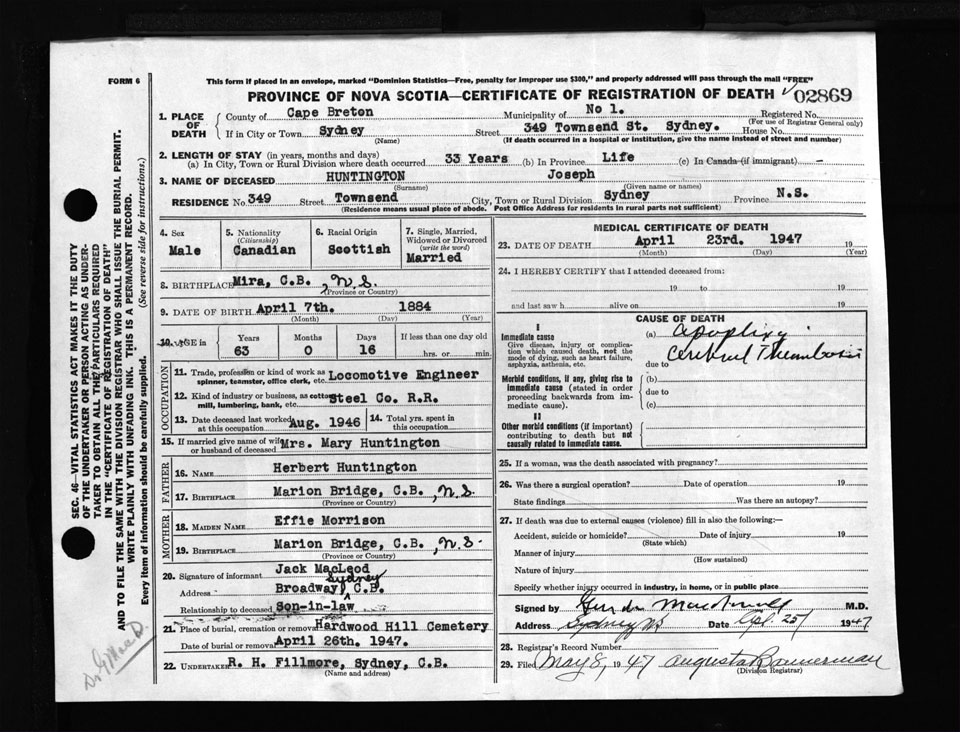 FORM 6
This form if placed in an envelope, marked "Dominion Statistics—Free, penalty for improper use $300," and properly addressed will pass through the mail "FREE"
PROVINCE OF NOVA SCOTIA—CERTIFICATE OF REGISTRATION OF DEATH 02869
1. PLACE OF DEATH
County of Cape Breton Municipality of No 1. Registered No.
(For use of Registrar General only)
If in City or Town Sydney Street 349 Townsend St. Sydney. House No.
(Name) (If death occurred in a hospital or institution, give the name instead of street and number)
2. LENGTH OF STAY (in years, months and days)
(a) In City, Town or Rural Division where death occurred 33 Years (b) In Province Life (c) In Canada (if immigrant) -
3. NAME OF DECEASED HUNTINGTON Joseph
(Surname) (Given name or names)
RESIDENCE No. 349 Street Townsend City, Town or Rural Division Sydney Province N.S.
(Residence means usual place of abode. Post Office Address for residents in rural parts not sufficient)
4. Sex
Male
5. Nationality
(Citizenship)
Canadian
6. Racial Origin
Scottish
7. Single, Married, Widowed or Divorced
(write the word)
Married
8. BIRTHPLACE Mira, C.B., N.S.
(Province or Country)
9. DATE OF BIRTH April 7th. 1884
(Month) (Day) (Year)
10. AGE in
Years Months Days If less than one day old
63 0 16 hrs. or min.
OCCUPATION
11. Trade, profession or kind of work as spinner, teamster, office clerk, etc. Locomotive Engineer
12. Kind of industry or business, as cotton mill, lumbering, bank, etc. Steel Co. R.R.
13. Date deceased last worked at this occupation Aug. 1946
14. Total yrs. spent in this occupation
15. If married give name of wife or husband of deceased Mrs. Mary Huntington
FATHER
16. NAME Herbert Huntington
17. BIRTHPLACE Marion Bridge, C.B., N.S.
(Province or Country)
MOTHER
18. MAIDEN NAME Effie Morrison
19. BIRTHPLACE Marion Bridge, C.B., N.S.
(Province or Country)
20. Signature of informant Jack MacLeod
Address Broadway, Sydney C.B.
Relationship to deceased Son-in-law
21. Place of burial, cremation or removal Hardwood Hill Cemetery
Date of burial or removal April 26th. 1947.
22. UNDERTAKER R. H. Fillmore, Sydney, C.B.
(Name and address)
MEDICAL CERTIFICATE OF DEATH
23. DATE OF DEATH April 23rd. 1947 19
(Month) (Day) (Year)
24. I HEREBY CERTIFY that I attended deceased from:
19 to 19
and last saw h alive on 19
CAUSE OF DEATH
I
Immediate cause
Give disease, injury or complication which caused death, not the mode of dying, such as heart failure, asphyxia, asthenia, etc.
(a) Apoplexy
due to Cerebral Thrombosis
Morbid conditions, if any, giving rise to immediate cause (stated in order proceeding backwards from immediate cause).
(b)
due to
(c)
II
Other morbid conditions (if important) contributing to death but not causally related to immediate cause.
25. If a woman, was the death associated with pregnancy?
26. Was there a surgical operation? Date of operation 19
State findings Was there an autopsy?
27. If death was due to external causes (violence) fill in also the following:—
Accident, suicide or homicide? Date of injury 19
(State which)
Manner of injury
(How sustained)
Nature of injury
Specify whether injury occurred in industry, in home, or in public place
Signed by M.D.
Address Sydney NS Date Apl. 25/ 1947
28. Registrar's Record Number
29. Filed May 8, 1947 Augusta Bannerman
(Division Registrar)
SEC. 46—VITAL STATISTICS ACT MAKES IT THE DUTY
OF THE UNDERTAKER OR PERSON ACTING AS UNDERTAKER
TO OBTAIN ALL THE PARTICULARS REQUIRED
IN THE "CERTIFICATE OF REGISTRATION OF DEATH"
AND TO FILE THE SAME WITH THE DIVISION REGISTRAR WHO SHALL ISSUE THE BURIAL PERMIT.
WRITE PLAINLY WITH UNFADING INK. THIS IS A PERMANENT RECORD.
Every item of Information should be carefully supplied. (See reverse side for instructions.)